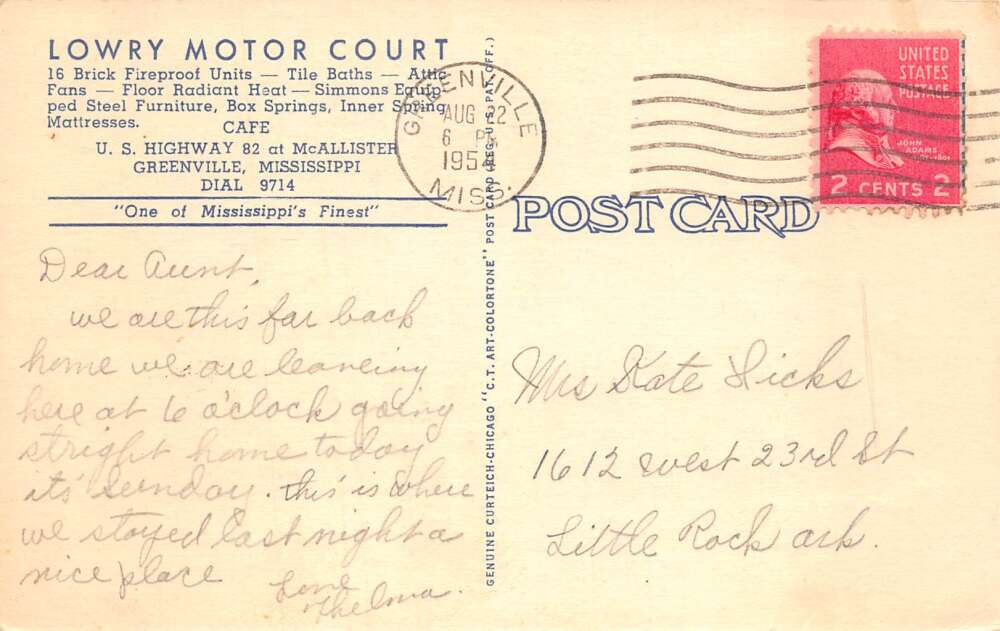 LOWRY MOTOR COURT
16 Brick Fireproof Units — Tile Baths — Attic
Fans — Floor Radiant Heat — Simmons Equip-
ped Steel Furniture, Box Springs, Inner Spring
Mattresses.
CAFE
U. S. HIGHWAY 82 at McALLISTER
GREENVILLE, MISSISSIPPI
DIAL 9714
"One of Mississippi's Finest"
Dear Aunt,
we are this far back
home we are leaveing
here at 6 o'clock going
stright home today
its' sunday. this is where
we stayed last night a
nice place
Love
Thelma.
GENUINE CURTEICH-CHICAGO "C.T. ART-COLORTONE" POST CARD (REG. U.S. PAT. OFF.)
GREENVILLE
AUG 22
6 PM
195
MISS.
UNITED
STATES
POSTAGE
JOHN
ADAMS
2 CENTS 2
POST CARD
Mrs Kate Hicks
1612 west 23rd St
Little Rock ark.